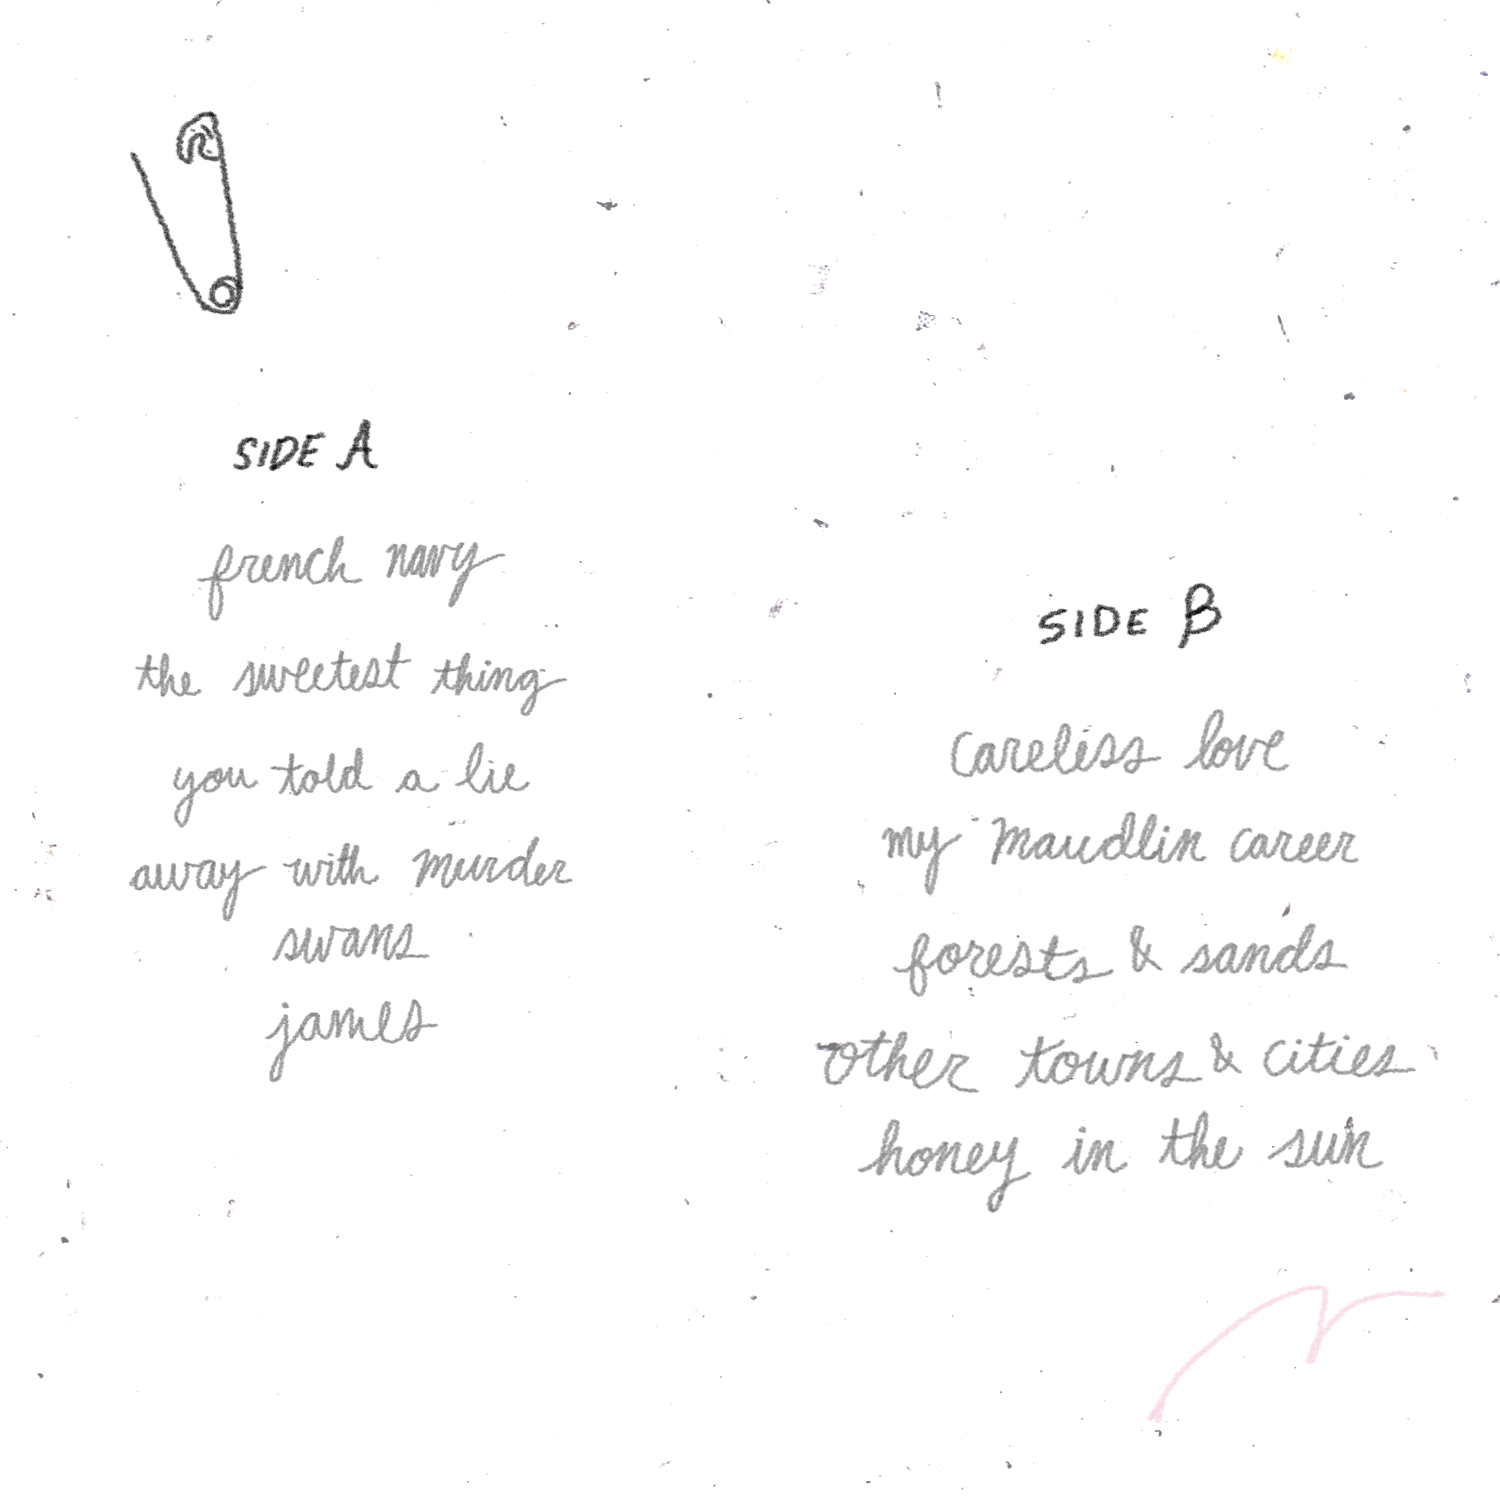 SIDE A
french navy
the sweetest thing
you told a lie
away with murder
swans
james
SIDE B
careless love
my maudlin career
forests & sands
other towns & cities
honey in the sun